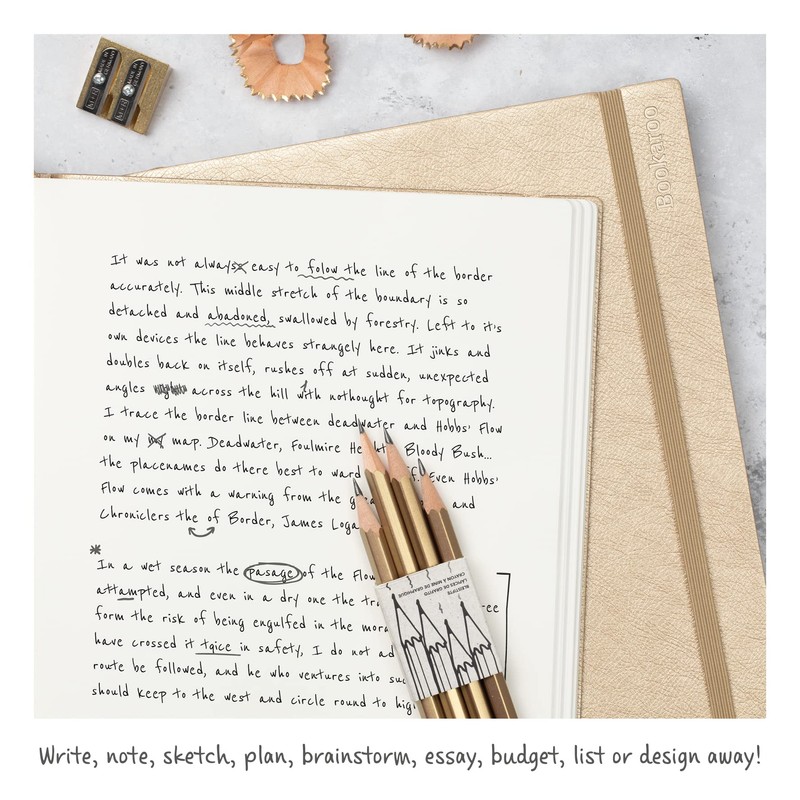 Bookaroo
It was not always easy to folow the line of the border
accurately. This middle stretch of the boundary is so
detached and abadoned, swallowed by forestry. Left to it's
own devices the line behaves strangely here. It jinks and
doubles back on itself, rushes off at sudden, unexpected
angles across the hill with nothought for topography.
I trace the border line between deadwater and Hobbs' Flow
on my map. Deadwater, Foulmire Bloody Bush...
the placenames do there best to ward Even Hobbs'
Flow comes with a warning from the and
Chroniclers the of Border, James
*
In a wet season the pasage of the Flow
attampted, and even in a dry one the
form the risk of being engulfed in the
have crossed it tgice in safety, I do not
route be followed, and he who ventures into
should keep to the west and circle round to
BLEISTIFTE
LÁPICES DE GRAFITO
CRAYON À MINE DE GRAPHIQUE
Write, note, sketch, plan, brainstorm, essay, budget, list or design away!